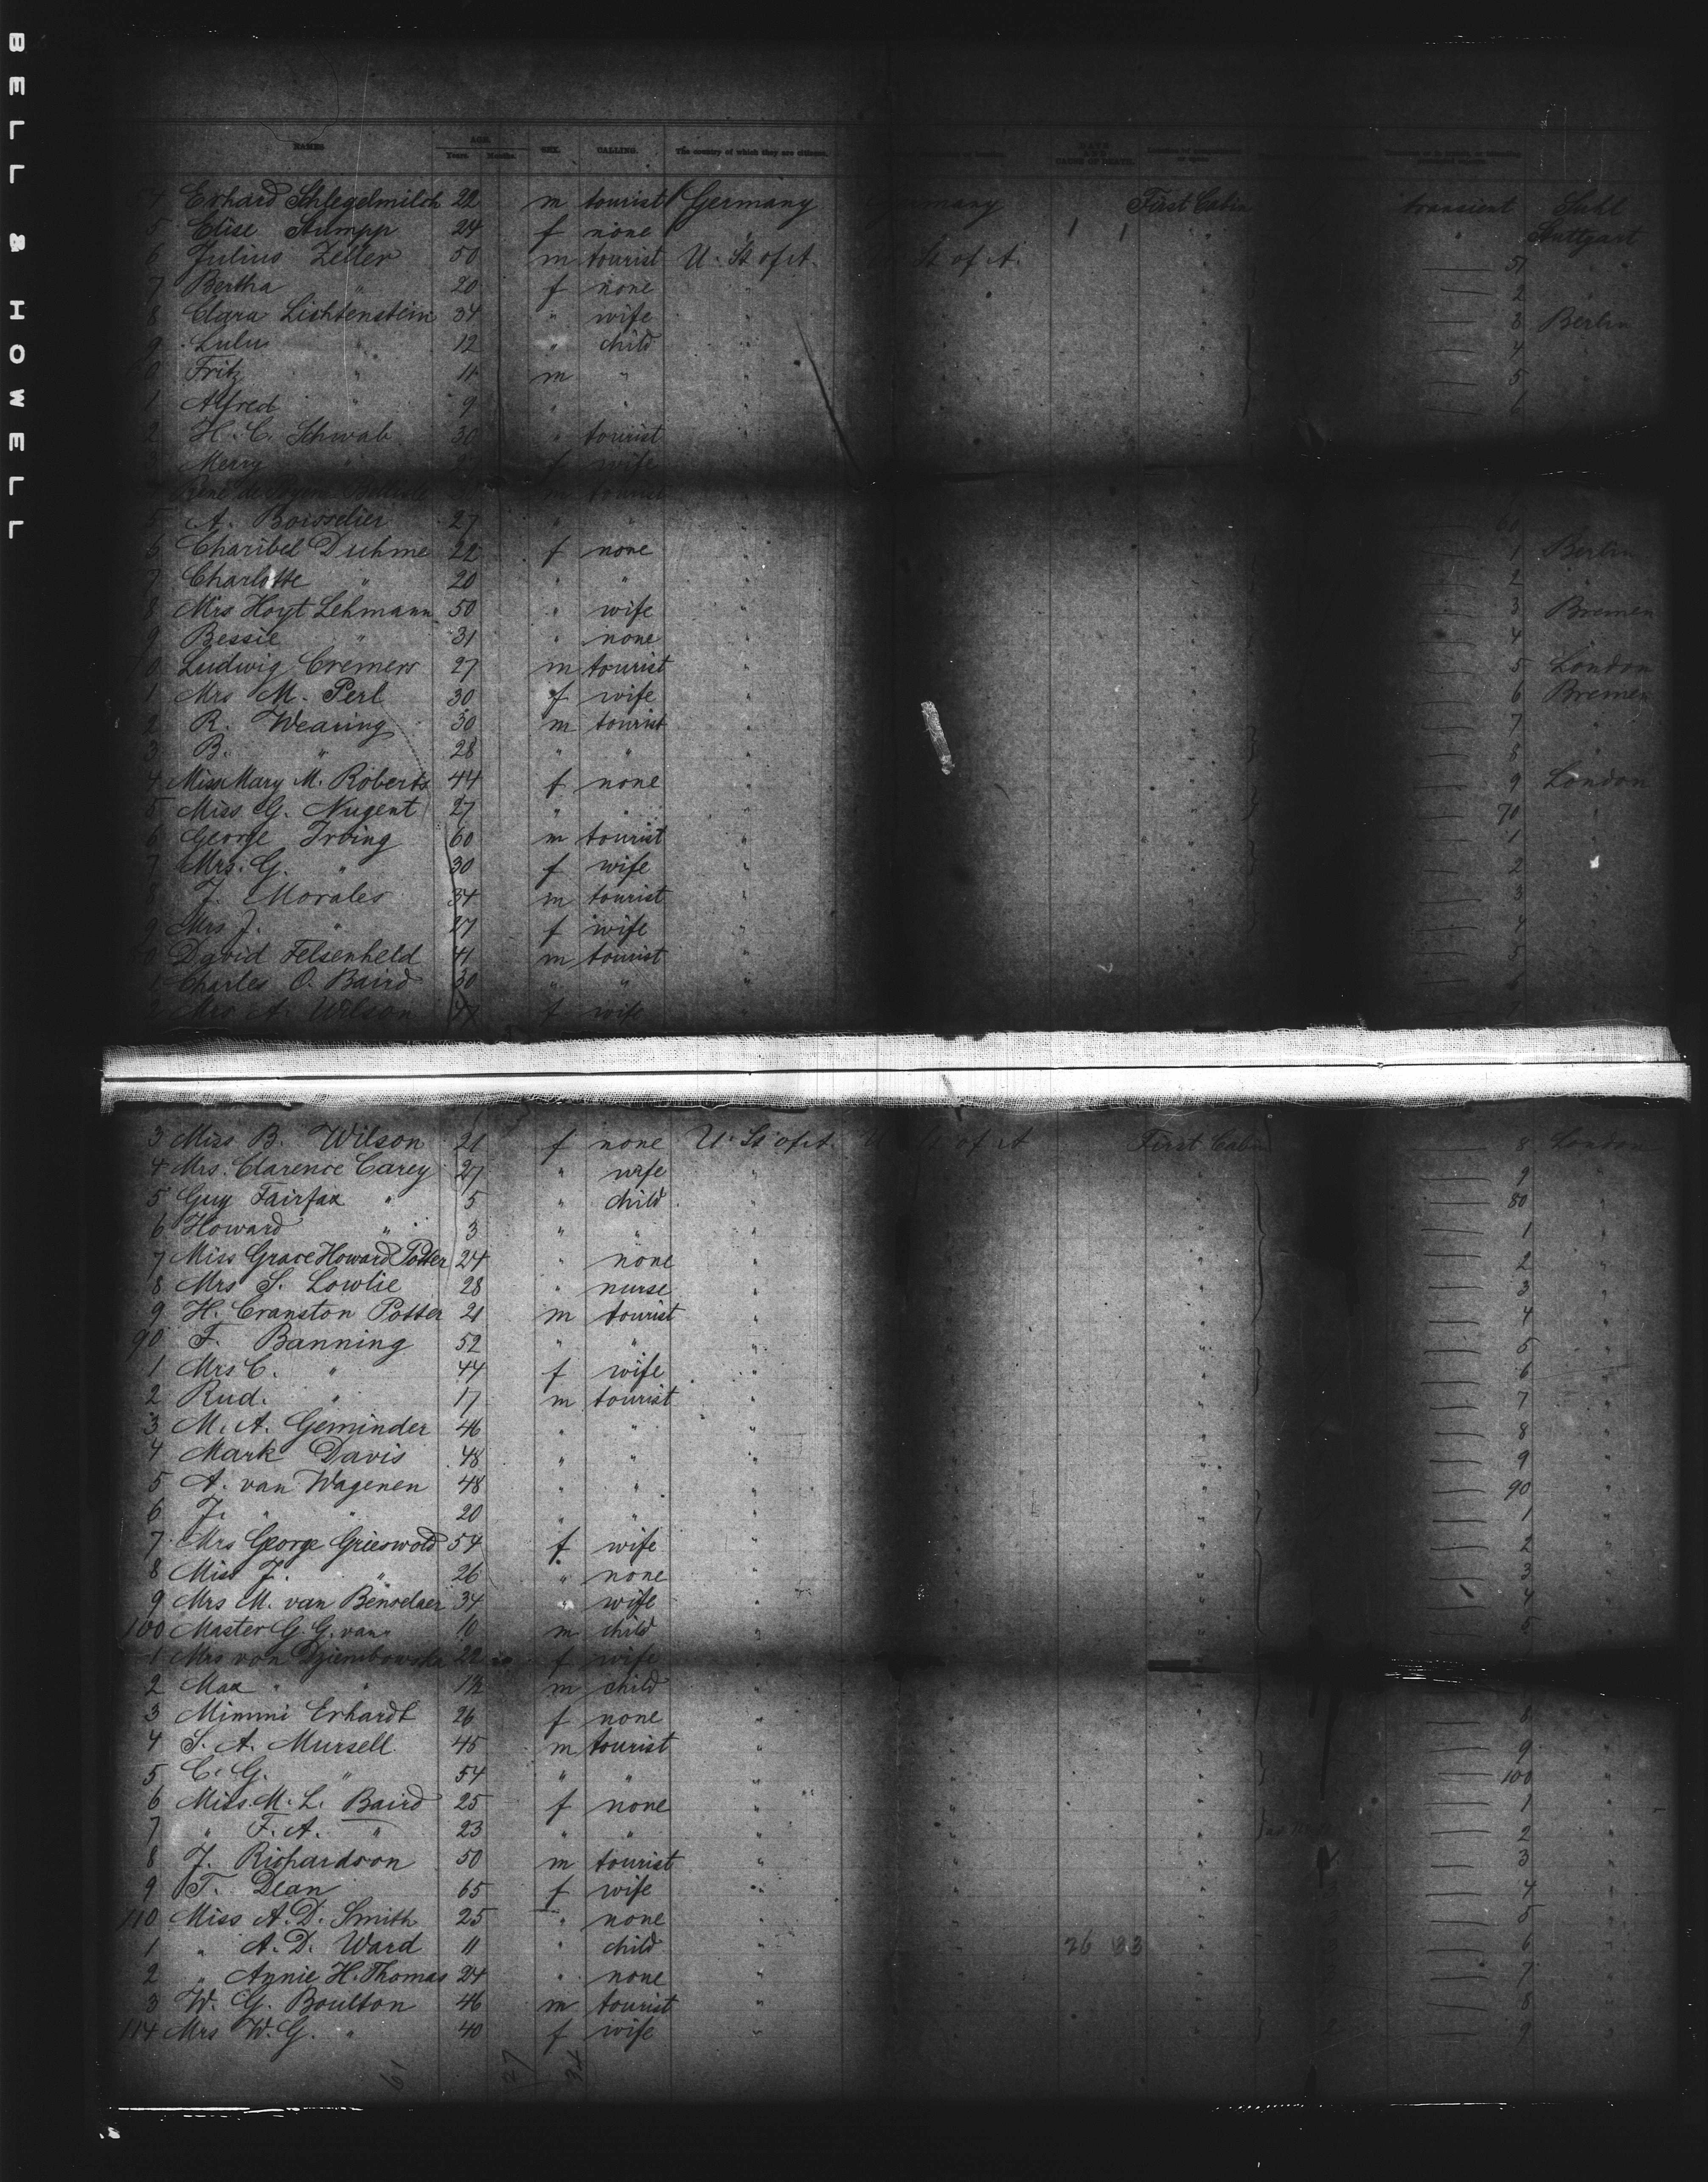 BELL & HOWELL
NAMES AGE. Years. Months. SEX. CALLING. The country of which they are citizens. DATE AND CAUSE OF DEATH.
4 Erhard Schlegelmilch 22 m tourist Germany Germany First Cabin transient Suhl
5 Elise Stumpp 24 f none " 1 1 " " Stuttgart
6 Julius Zeller 50 m tourist U. St. of A. U. St. of A. " — 51 "
7 Bertha " 20 f none " " — 2 "
8 Clara Lichtenstein 34 " wife " " — 3 Berlin
9 Lulu " 12 " child " " — 4 "
0 Fritz " 11 m " " " — 5 "
1 Alfred " 9 " " " " — 6
2 H. C. Schwab 30 " tourist
3 Merry " f wife
m tourist
5 A. Boisselier 27 " " " 60
6 Charibel Duhme 22 f none " — 1 Berlin
7 Charlotte " 20 " " " — 2 "
8 Mrs Hoyt Lehmann 50 " wife " — 3 Bremen
9 Bessie " 31 " none " — 4 "
70 Ludwig Cremer 27 m tourist " — 5 London
1 Mrs M. Perl 30 f wife " — 6 Bremen
2 R. Wearing 30 m tourist " — 7 "
3 B. " 28 " " " — 8 "
4 Miss Mary M. Roberts 44 f none " — 9 London
5 Miss G. Nugent 27 " " " — 70 "
6 George Irving 60 m tourist " — 1 "
7 Mrs. G. " 30 f wife " — 2 "
8 J. Morales 34 m tourist " — 3 "
9 Mrs J. " 27 f wife " — 4 "
80 David Felsenheld 41 m tourist " — 5 "
1 Charles O. Baird 30 " " " — 6 "
2 Mrs A. Wilson 47 f wife " — 7
3 Miss B. Wilson 21 f none U. St. of A. U. St. of A First Cabin — 8 London
4 Mrs. Clarence Carey 27 " wife " " — 9 "
5 Guy Fairfax " 5 " child " " — 80 "
6 Howard " 3 " " " " — 1 "
7 Miss Grace Howard Potter 24 " none " " — 2 "
8 Mrs S. Lowlie 28 " nurse " " — 3 "
9 H. Cranston Potter 21 m tourist " " — 4 "
90 F. Banning 52 " " " " — 5 "
1 Mrs C. " 44 f wife " " — 6 "
2 Rud. " 17 m tourist " " — 7 "
3 M. A. Geminder 46 " " " " — 8 "
4 Mark Davis 48 " " " " — 9 "
5 A. van Wagenen 48 " " " " — 90 "
6 J. " " 20 " " " " — 1 "
7 Mrs George Grieswold 54 f wife " " — 2 "
8 Miss J. " 26 " none " " — 3 "
9 Mrs M. van Benselaer 34 " wife " " — 4 "
100 Master G. G. van " 10 m child " " — 5 "
1 Mrs von Dziembowska 22 f wife "
2 Max " " 1½ m child "
3 Mimmi Erhardt 26 f none " " — 8 "
4 S. A. Mursell 45 m tourist " " — 9 "
5 C. G. " 54 " " " " — 100 "
6 Miss. M. L. Baird 25 f none " " — 1 "
7 " F. A. " 23 " " " " — 2 "
8 J. Richardson 50 m tourist " " — 3 "
9 T. Dean 65 f wife " " — 4 "
110 Miss A. D. Smith 25 " none " " — 5 "
1 " A. D. Ward 11 " child " 26 33 " — 6 "
2 " Annie H. Thomas 24 " none " " — 7 "
3 W. G. Boulton 46 m tourist " " — 8 "
114 Mrs W. G. " 40 f wife " " — 9 "
61 27 34